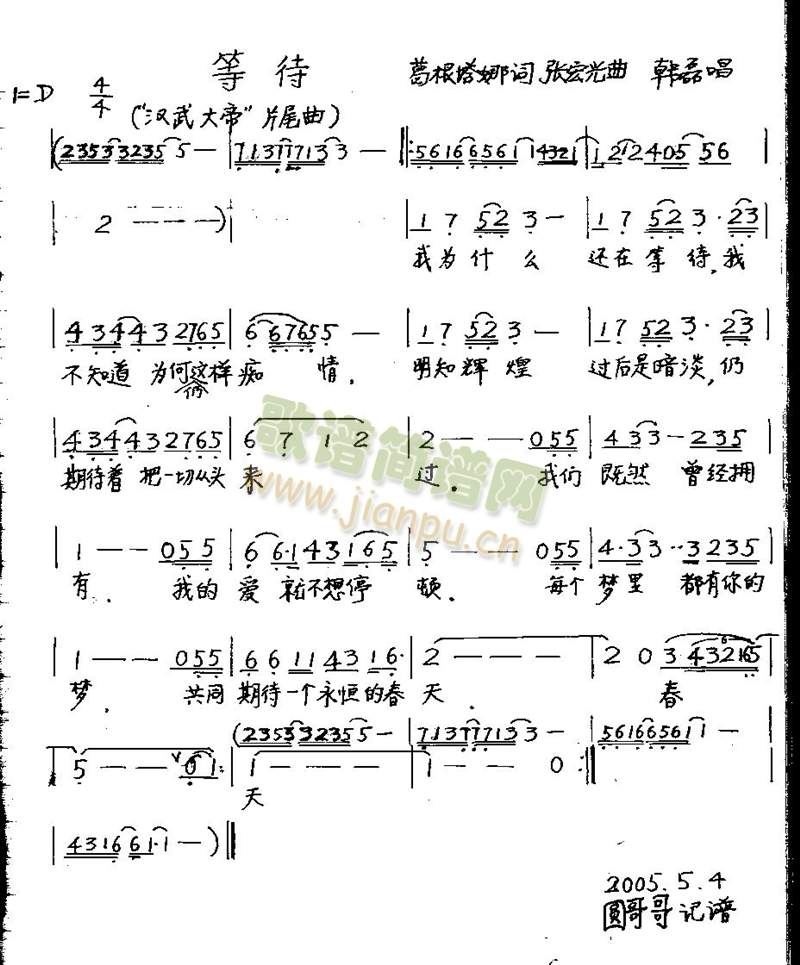 等待 葛根塔娜词 张宏光曲 韩磊唱
1=D 4/4
("汉武大帝"片尾曲)
(235332355— | 713777133— |: 561665611 4321 | 12124055 56 |
2———) | | 17523— | 17523·23 |
我为什么 还在等待,我
434432765 | 6676555— | 17523— | 17523·23 |
不知道 为何这样痴 情, 明知辉煌 过后是暗淡,仍
你
434432765 | 6712 | 2——055 | 433—235 |
期待着 把一切从头 来 过. 我们 既然 曾经拥
1——055 | 66·143165 | 5——055 | 4·33··3235 |
有. 我的 爱 就不想停 顿. 每个 梦里 都有你的
1——055 | 66114316· | 2——— | 203432165
梦, 共同 期待一个永恒的春 天. 春
(235332355— | 713777133— | 561665611—
5——01:| 1——— | 1——0:||
天
4316611·1—) ||
2005.5.4
圆哥哥记谱
歌谱简谱网
www.jianpu.cn